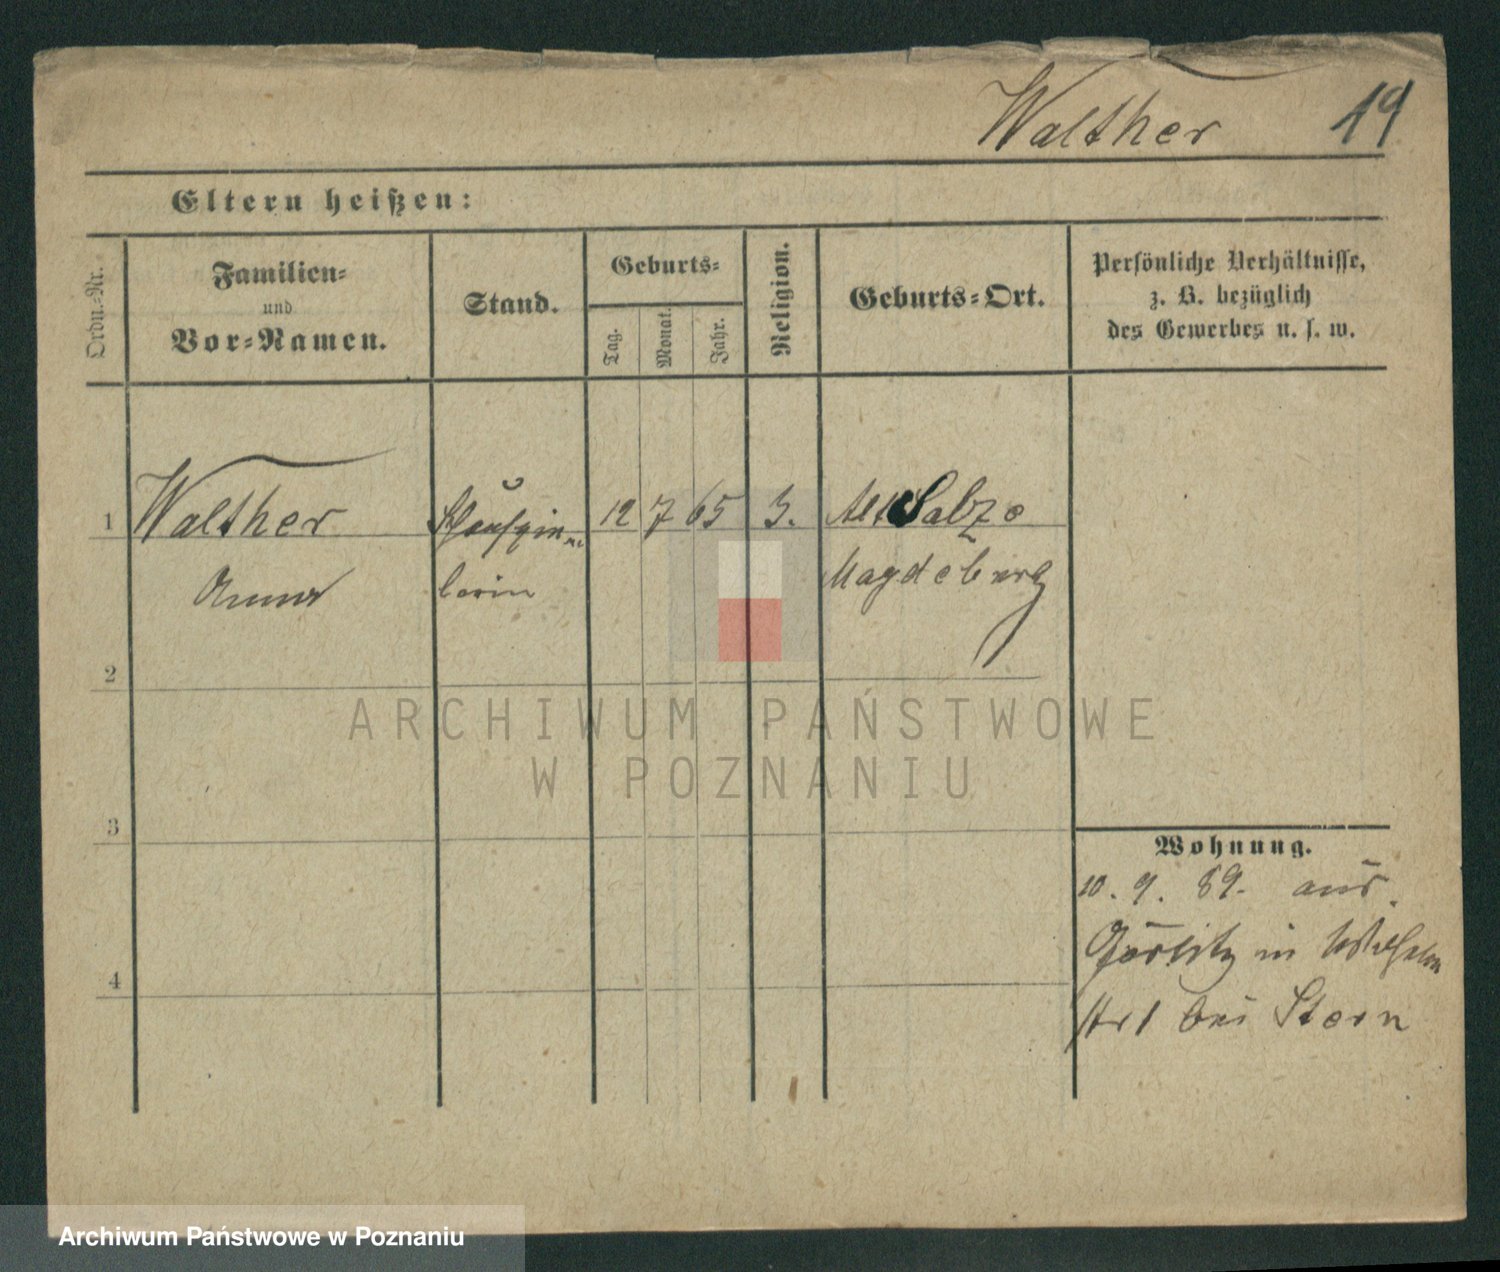 Walther 19
Eltern heißen:
Ordn.-Nr.
Familien-
und
Vor-Namen.
Stand.
Geburts-
Tag.
Monat.
Jahr.
Religion.
Geburts-Ort.
Persönliche Verhältnisse,
z. B. bezüglich
des Gewerbes u. s. w.
1 Walther 12 7 65 Alt Salze
Anna Magdeburg
2
3
4
Wohnung.
10. 9. 89. aus
Görlitz in Wilhelm
str 1 bei Stern
ARCHIWUM PAŃSTWOWE
W POZNANIU
Archiwum Państwowe w Poznaniu